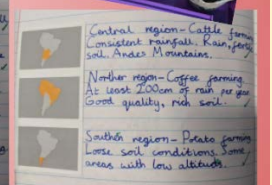 Central region - Cattle farming
Consistent rainfall. Rain, fertile
soil. Andes Mountains.
Norther region - Coffee farming.
At least 200cm of rain per year
Good quality, rich soil.
Southern region - Potato farming
Loose soil conditions. Some
areas with low altitudes.